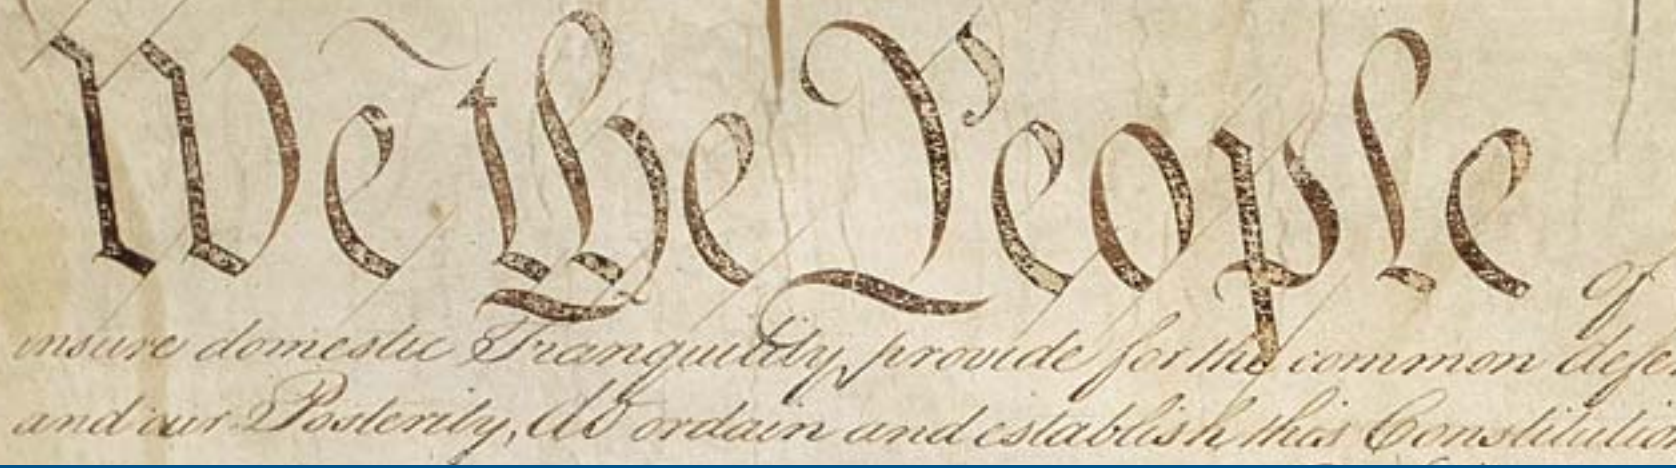 We the People of
insure domestic Tranquility, provide for the common defen
and our Posterity, do ordain and establish this Constitution